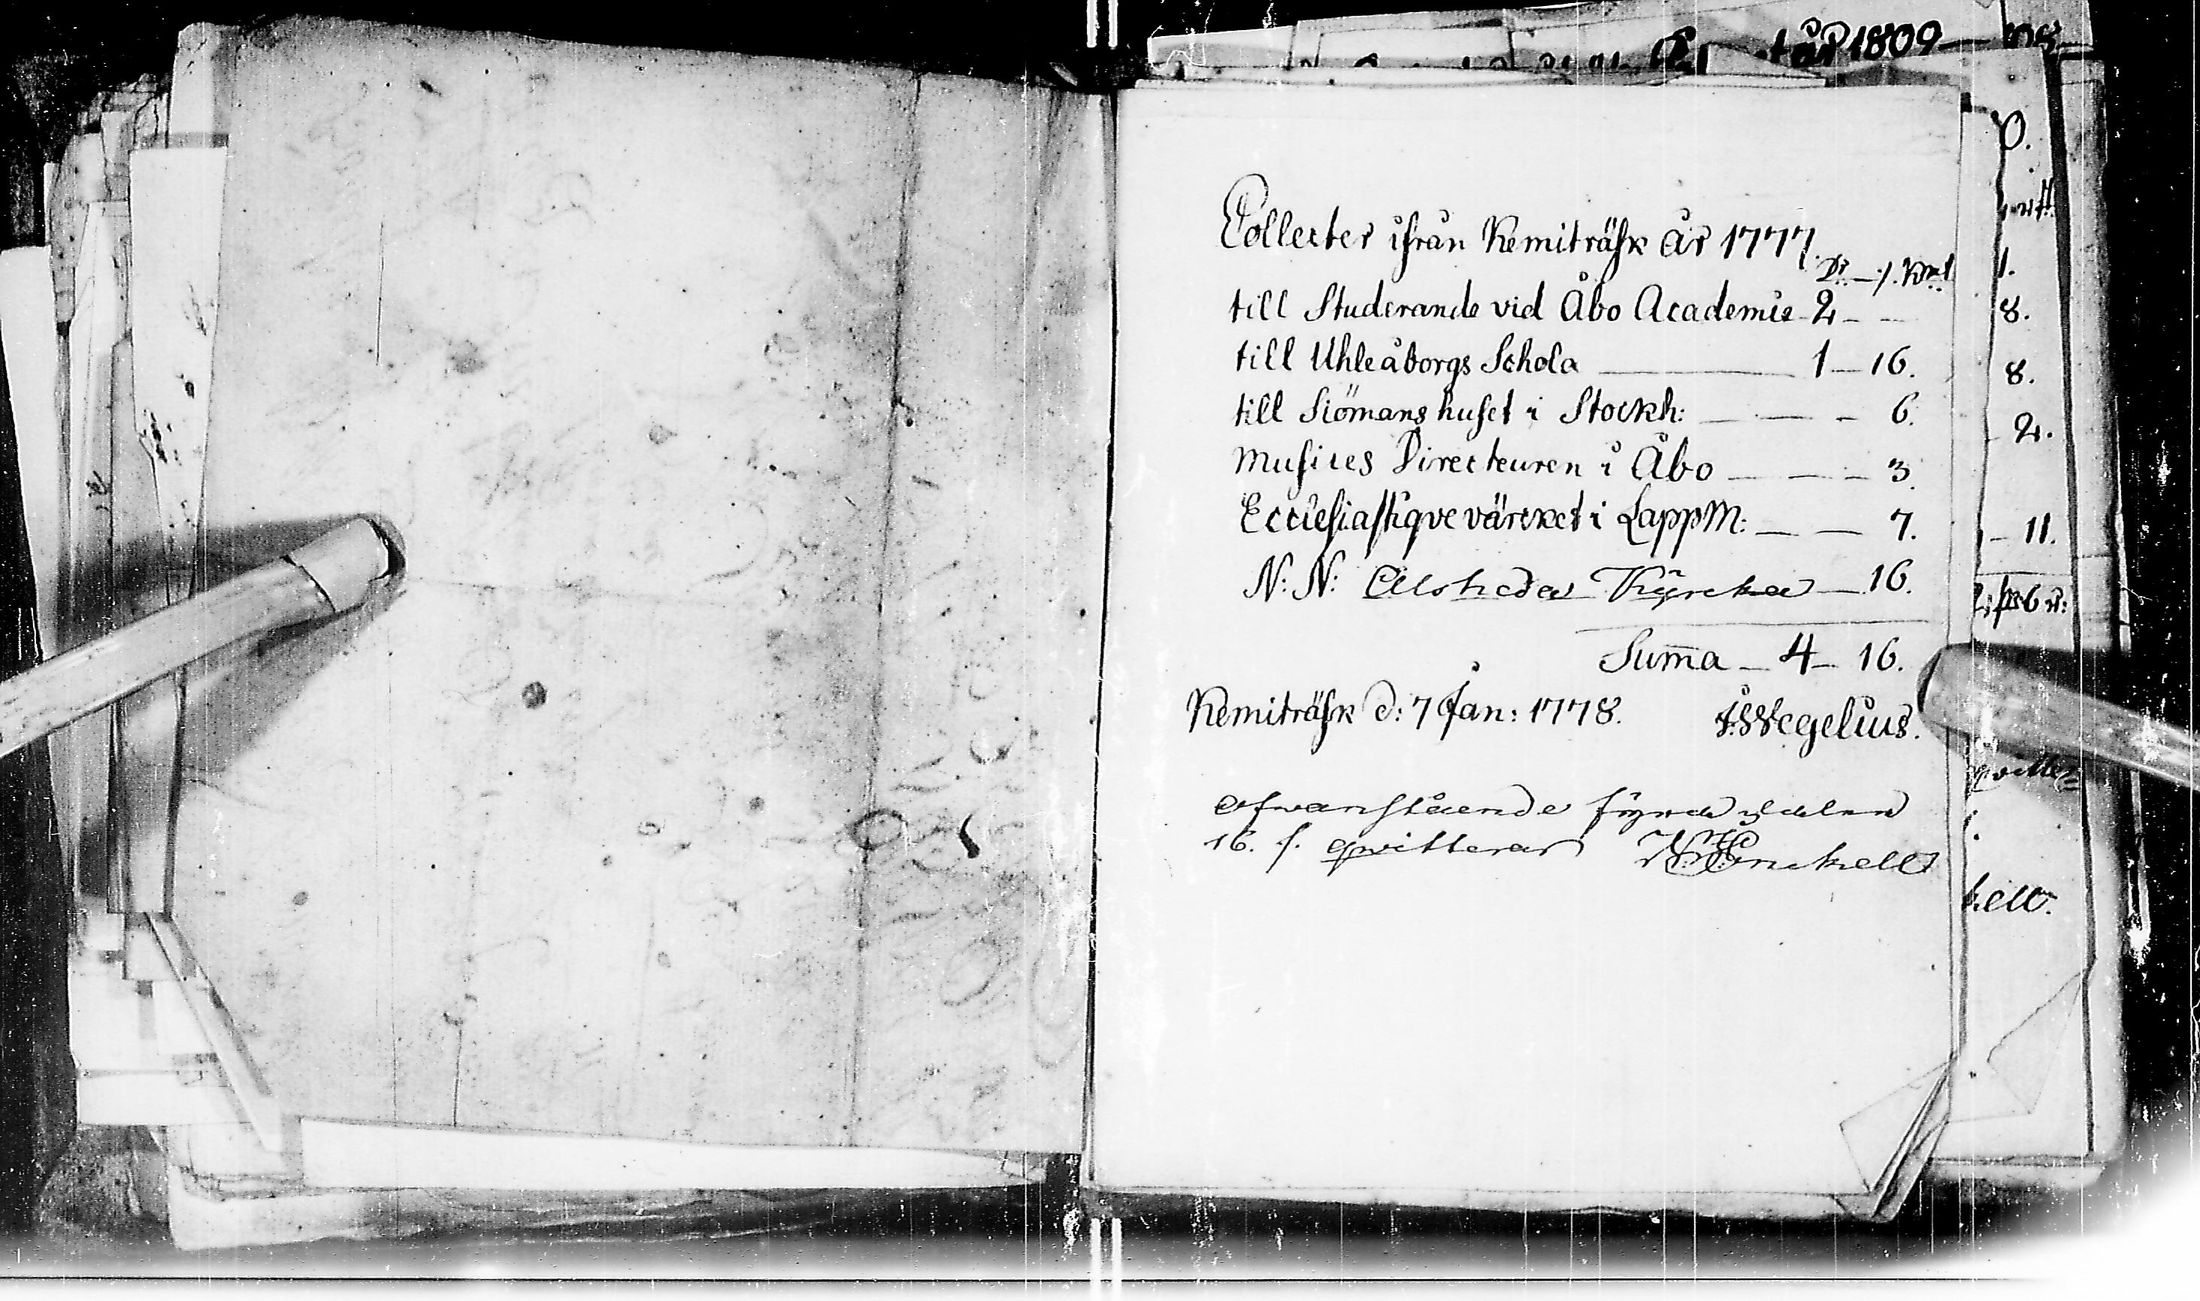 år 1809
Collecter ifrån Kemiträsk År 1777.
Dr. — /. Kmt
till Studerande vid Åbo Academie 2 — —
till Uhleåborgs Schola — 1 — 16.
till Siömanshuset i Stockh: — — — 6.
Musices Directeuren i Åbo — — — 3.
Ecclesiastique värcket i LappM: — — 7.
N: N: Alsheda Kÿrcka — 16.
Sum̄a — 4 — 16.
Kemiträsk d: 7 Jan: 1778.
Wegelius.
ofwanstående fÿra dalen
16. s. qvitterar
8.
8.
2.
11.